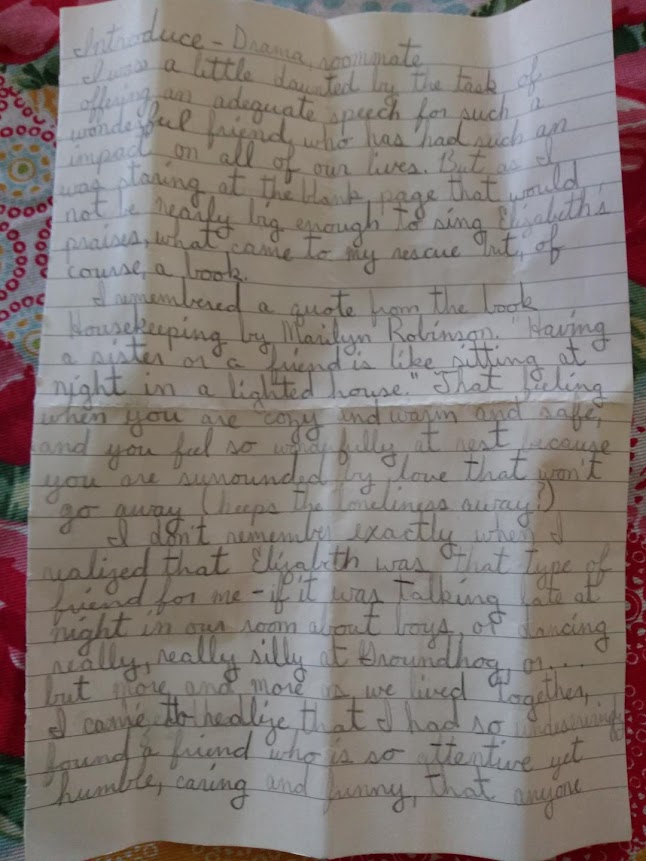 Introduce - Drama, roommate
I was a little daunted by the task of
offering an adequate speech for such a
wonderful friend who has had such an
impact on all of our lives. But as I
was staring at the blank page that would
not be nearly big enough to sing Elizabeth's
praises, what came to my rescue but, of
course, a book.
I remembered a quote from the book
Housekeeping by Marilyn Robinson. "Having
a sister or a friend is like sitting at
night in a lighted house." That feeling
when you are cozy and warm and safe,
and you feel so wonderfully at rest because
you are surrounded by love that won't
go away (keeps the loneliness away?)
I don't remember exactly when I
realized that Elizabeth was that type of
friend for me - if it was talking late at
night in our room about boys, or dancing
really, really silly at Groundhog, or....
but more and more as we lived together,
I came to realize that I had so undeservingly
found a friend who is so attentive yet
humble, caring and funny, that anyone